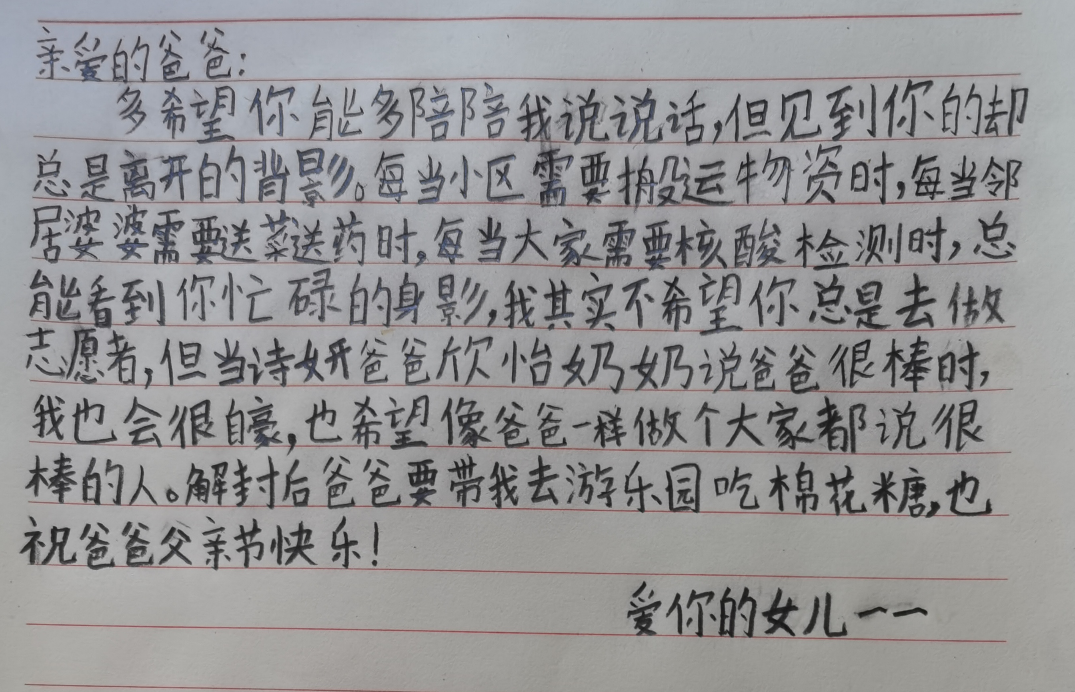 亲爱的爸爸:
多希望你能多陪陪我说说话,但见到你的却
总是离开的背影。每当小区需要搬运物资时,每当邻
居婆婆需要送菜送药时,每当大家需要核酸检测时,总
能看到你忙碌的身影,我其实不希望你总是去做
志愿者,但当诗妍爸爸欣怡奶奶说爸爸很棒时,
我也会很自豪,也希望像爸爸一样做个大家都说很
棒的人。解封后爸爸要带我去游乐园吃棉花糖,也
祝爸爸父亲节快乐!
爱你的女儿一一